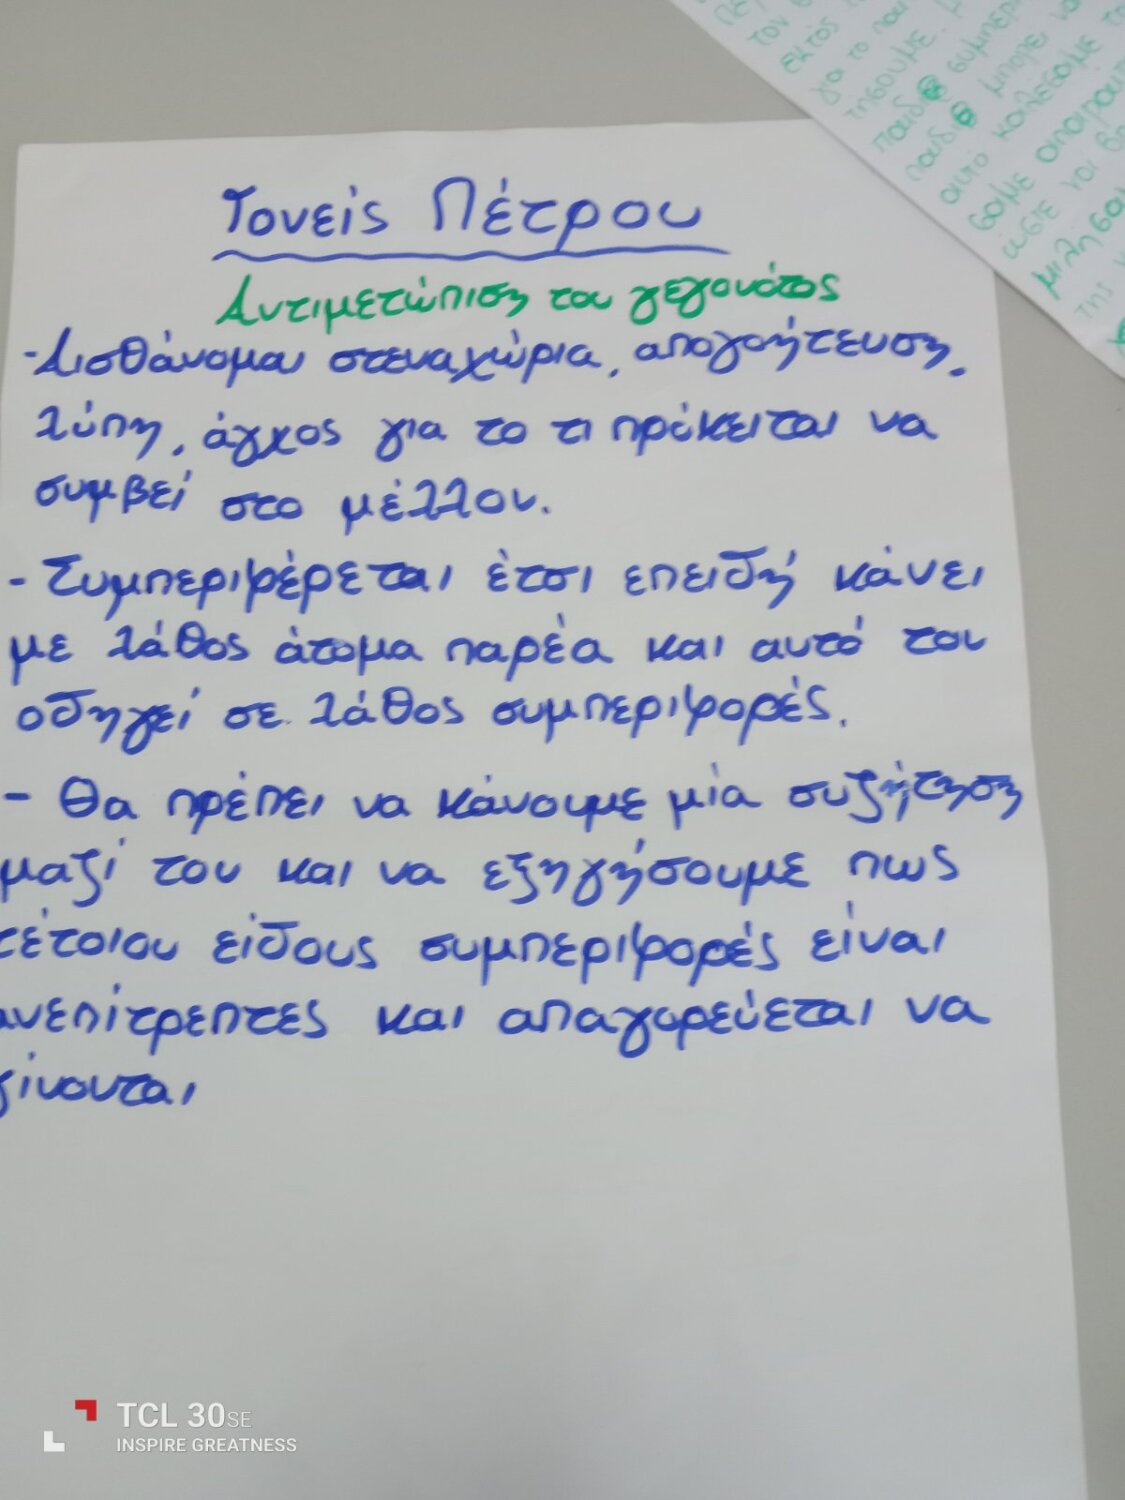 Γονείς Πέτρου
Αντιμετώπιση του γεγονότος
- Αισθάνομαι στεναχώρια, απογοήτευση,
λύπη, άγχος για το τι πρόκειται να
συμβεί στο μέλλον.
- Συμπεριφέρεται έτσι επειδή κάνει
με λάθος άτομα παρέα και αυτό τον
οδηγεί σε λάθος συμπεριφορές.
- Θα πρέπει να κάνουμε μία συζήτηση
μαζί του και να εξηγήσουμε πως
τέτοιου είδους συμπεριφορές είναι
ανεπίτρεπτες και απαγορεύεται να
γίνονται
τον
εκτός
για το
τησουμε.
παιδί συμπερι
παιδί μπολει να
αυτό καλέσαμε
σαμε
ωσίε και
μιλήσαμ
της
TCL 30 SE
INSPIRE GREATNESS